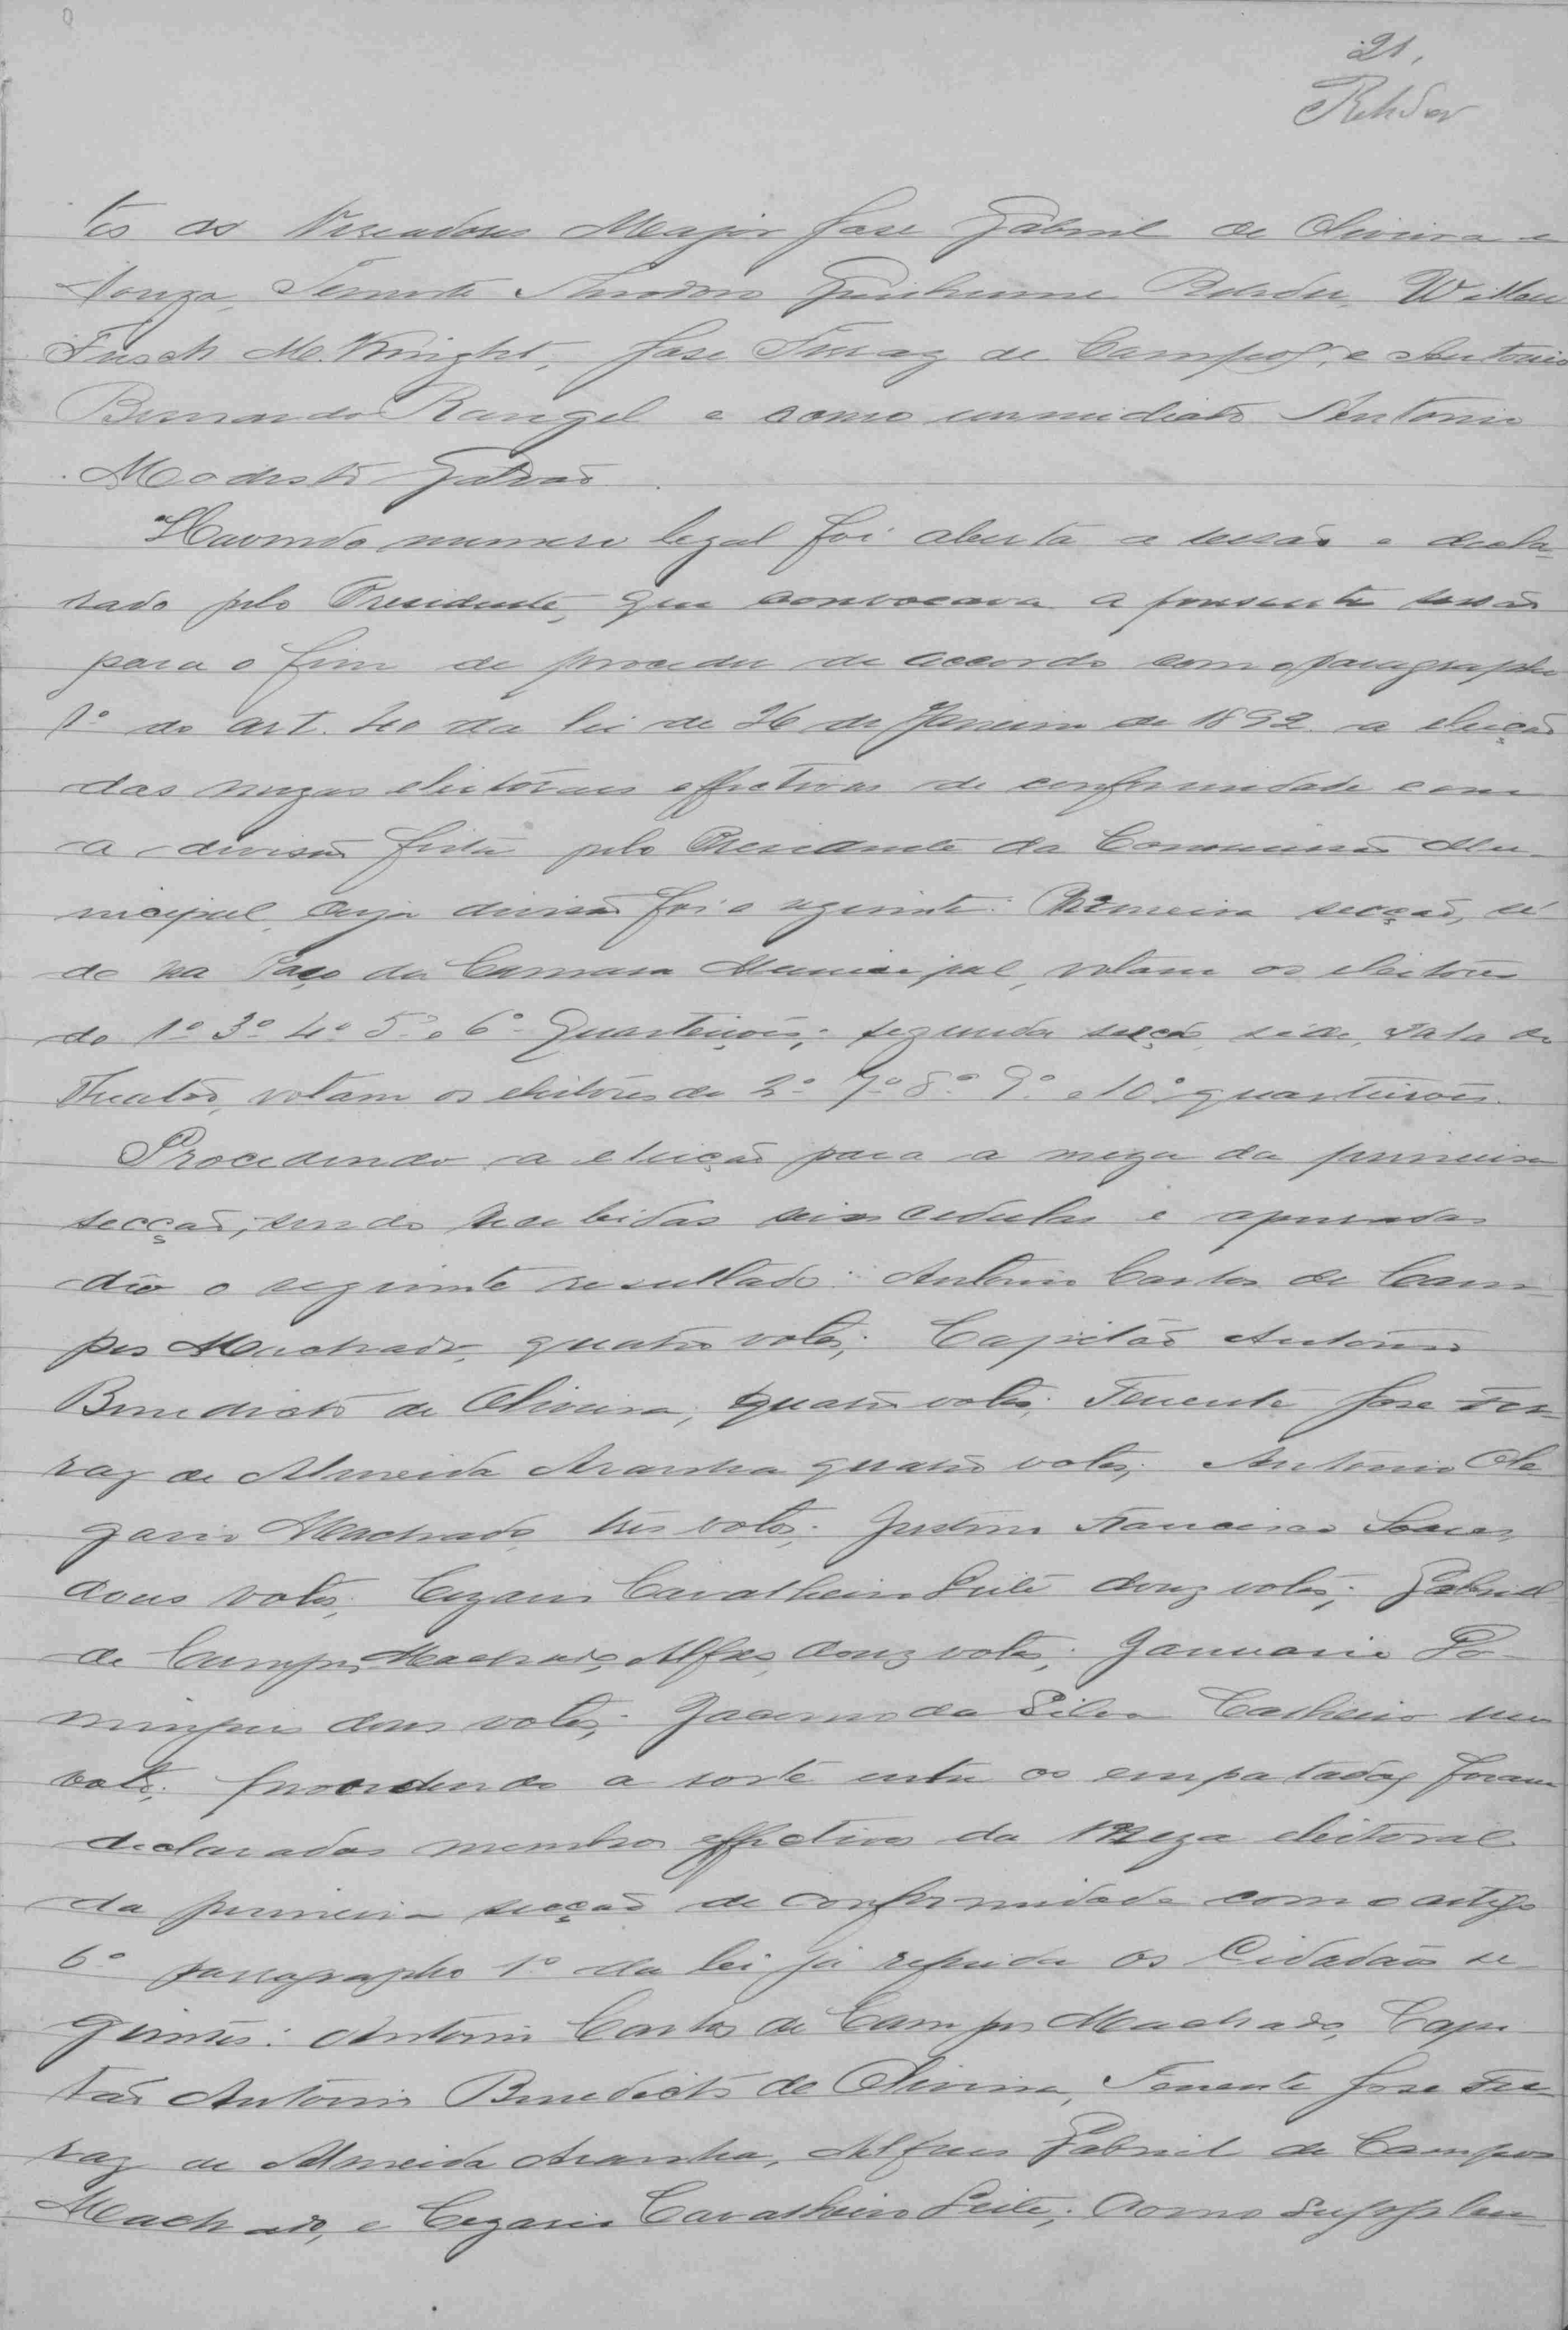 21,
Rehder
tes os Vereadores Major Jose Gabriel de Oliveira e
Souza, Tenente Theodoro Guilherme Rehder, Willian
Fisch Mc. Knight, Jose Ferraz de Campos, e Antonio
Bernardo Rangel e como immediato Antonio
Modesto Galvão
Havendo numero legal foi aberta a sessão e decla-
rado pelo Presidente, que convocava a presente sessão
para o fim de proceder de accordo com o paragrapho
1º do art. 40 da lei de 26 de Janeiro de 1892 a eleição
das mezas eleitoraes effectivas de conformidade com
a divisão feita pelo Presidente da Commissão Mu-
nicipal, cuja divisão foi a seguinte: Primeira secção, sé
de na Paço da Camara Municipal, votam os eleitores
do 1º 3º 4º 5º e 6º Quarteirões; segunda secção, séde, sala do
Theatro, votam os eleitores do 2º 7º 8º 9º e 10º quarteirões.
Procedendo a eleição para a meza da primeira
secção, sendo recebidas seis cedulas e apuradas
deo o seguinte resultado: Antonio Carlos de Cam
pos Machado, quatro votos; Capitão Antonio
Benedicto de Oliveira, quatro votos; Tenente Jose Fer-
raz de Almeida Aranha quatro votos; Antonio Ole
gario Machado, tres votos; Justino Francisco Soares,
dous votos, Cezario Cavalheiro Leite douz votos; Gabriel
de Campos Machado, Alferes, douz votos; Januario Do-
mingues dous votos; da Silva um
voto; procedendo a sorte entre os empatados foram
declarados membros effectivos da Meza eleitoral
da primeira secção de conformidade com o artigo
6º paragrapho 1º da lei já referida os Cidadãos se
guintes: Antonio Carlos de Campos Machado, Capi
tão Antonio Benedicto de Oliveira, Tenente Jose Fer
raz de Almeida Aranha, Alferes Gabriel de Campos
Machado, e Cezario Cavalheiro Leite; como supplen-